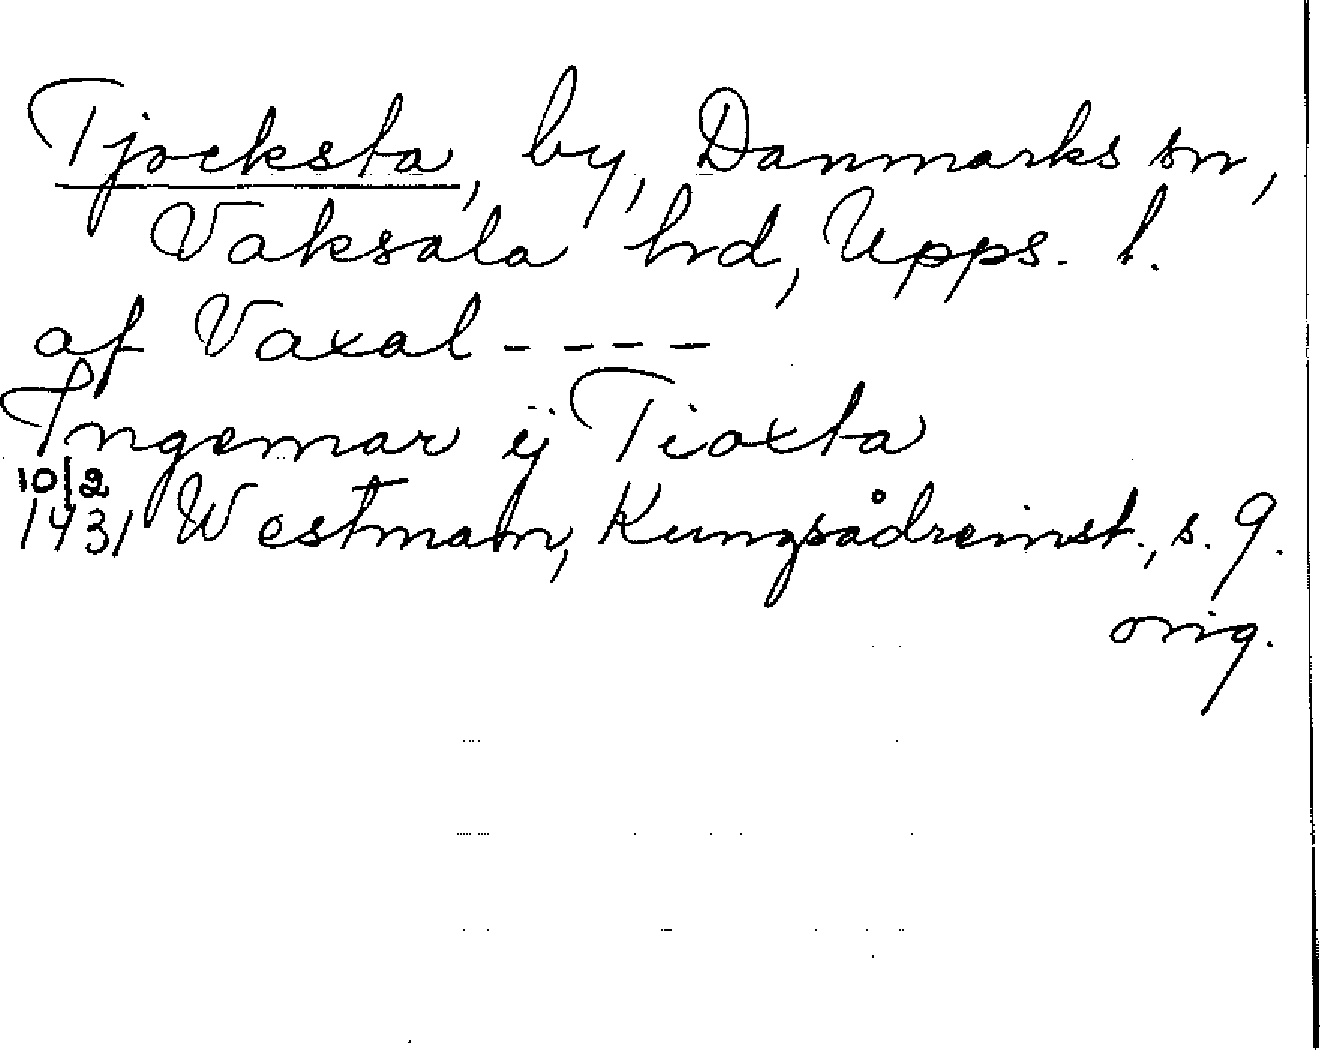 Tjocksta, by, Danmarks sn,
Vaksala hrd, Upps. l.
af Vaxal ----
Ingemar ij Tioxta
10/2
1431 Westman, Kungsådreinst., s. 9.
orig.